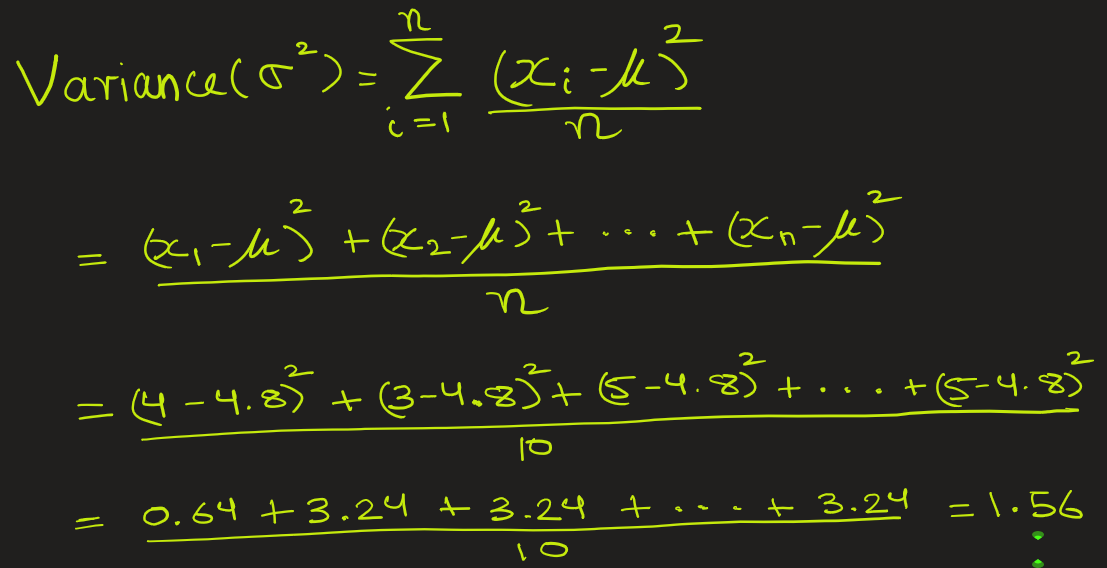 Variance(σ²) = Σ_{i=1}^{n} (xᵢ - μ)² / n
= ((x₁ - μ)² + (x₂ - μ)² + .... + (xₙ - μ)²) / n
= ((4 - 4.8)² + (3 - 4.8)² + (5 - 4.8)² + .... + (5 - 4.8)²) / 10
= (0.64 + 3.24 + 3.24 + .... + 3.24) / 10 = 1.56